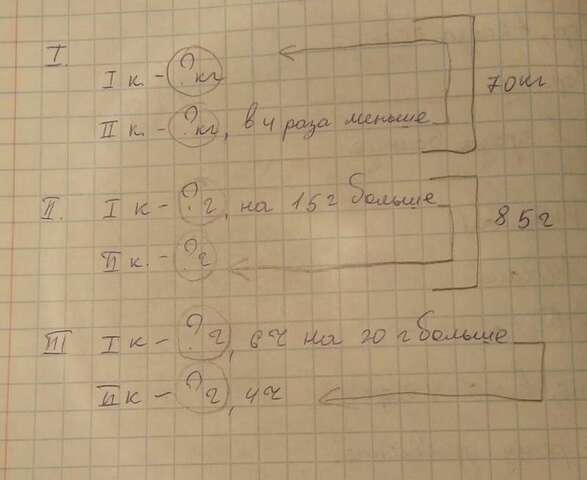 I.
I к. - ? кг
II к. - ? кг, в 4 раза меньше
70 кг
II. I к - ? г, на 15 г больше
II к. - ? г
85 г
III I к - ? г, 6 ч на 20 г больше
II к - ? г, 4 ч